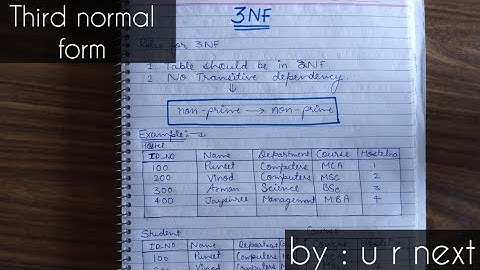 Third normal
form
3NF
Rules for 3NF
1. Table should be in 2NF
2 No Transitive dependency.
↓
non-prime → non-prime
Example:-
Hostel
ID_NO Name Department Course Hostelno
100 Puneet Computers MCA 1
200 Vinod Computers MSC 2
300 Arman Science BSc 3
400 Jayshree Management MBA 4
Student Course
ID_NO Name Department
100 Puneet Computers
Vinod
by : u r next